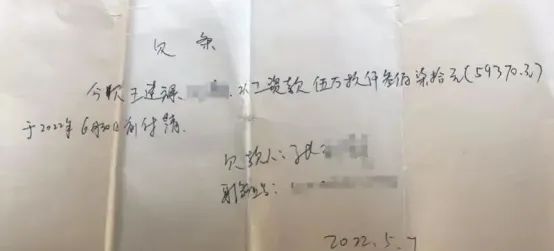 欠条
今欠王连 工资款伍万玖仟叁佰柒拾元(59370.元)
于2022年6月30日前付清.
欠款人:
身份证号:
2022.5.7